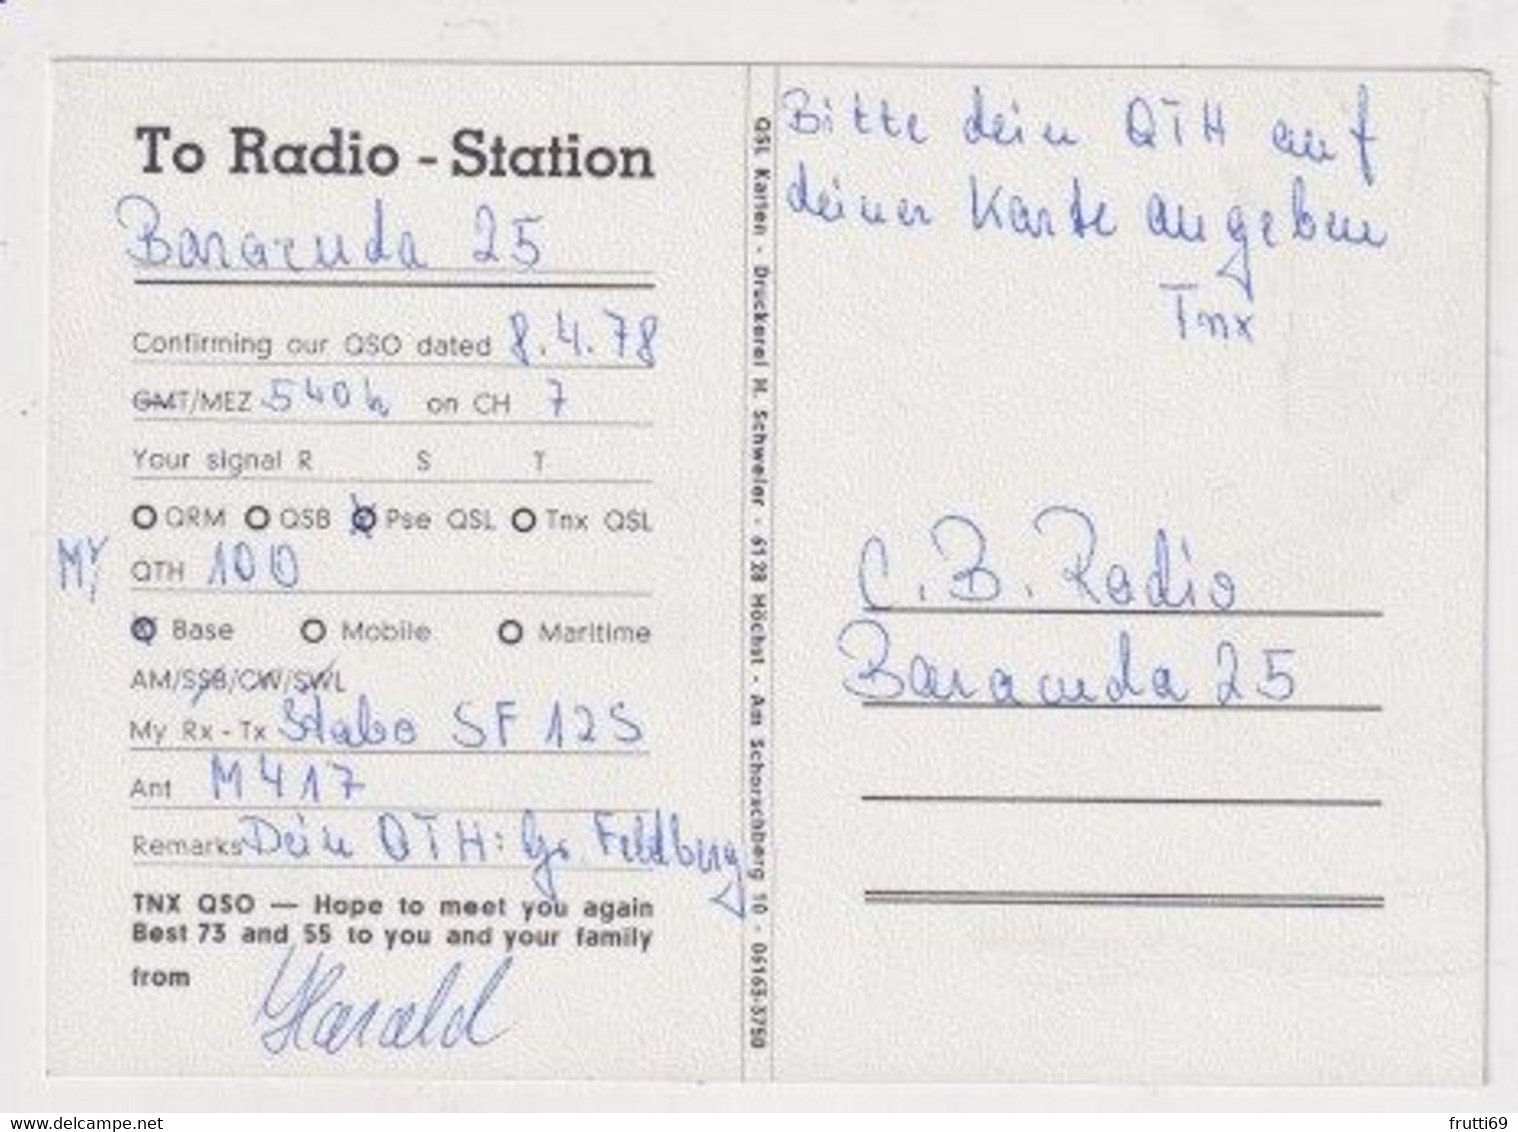 To Radio - Station
Bararuda 25
Confirming our QSO dated 8.4.78
GMT/MEZ 540h on CH 7
Your signal R S T
QRM QSB Pse QSL Tnx QSL
MY QTH 100
Base Mobile Maritime
AM/SSB/CW/SWL
My Rx - Tx Stabo SF 12S
Ant M417
Remarks Dein QTH: Gr. Feldberg
TNX QSO — Hope to meet you again
Best 73 and 55 to you and your family
from Harald
QSL Karten · Druckerei M. Schweier · 6128 Höchst · Am Schorschberg 10 · 06163-5750
Bitte dein QTH auf
deiner Karte angeben
Tnx
C. B. Radio
Baracuda 25
www.delcampe.net
frutti69